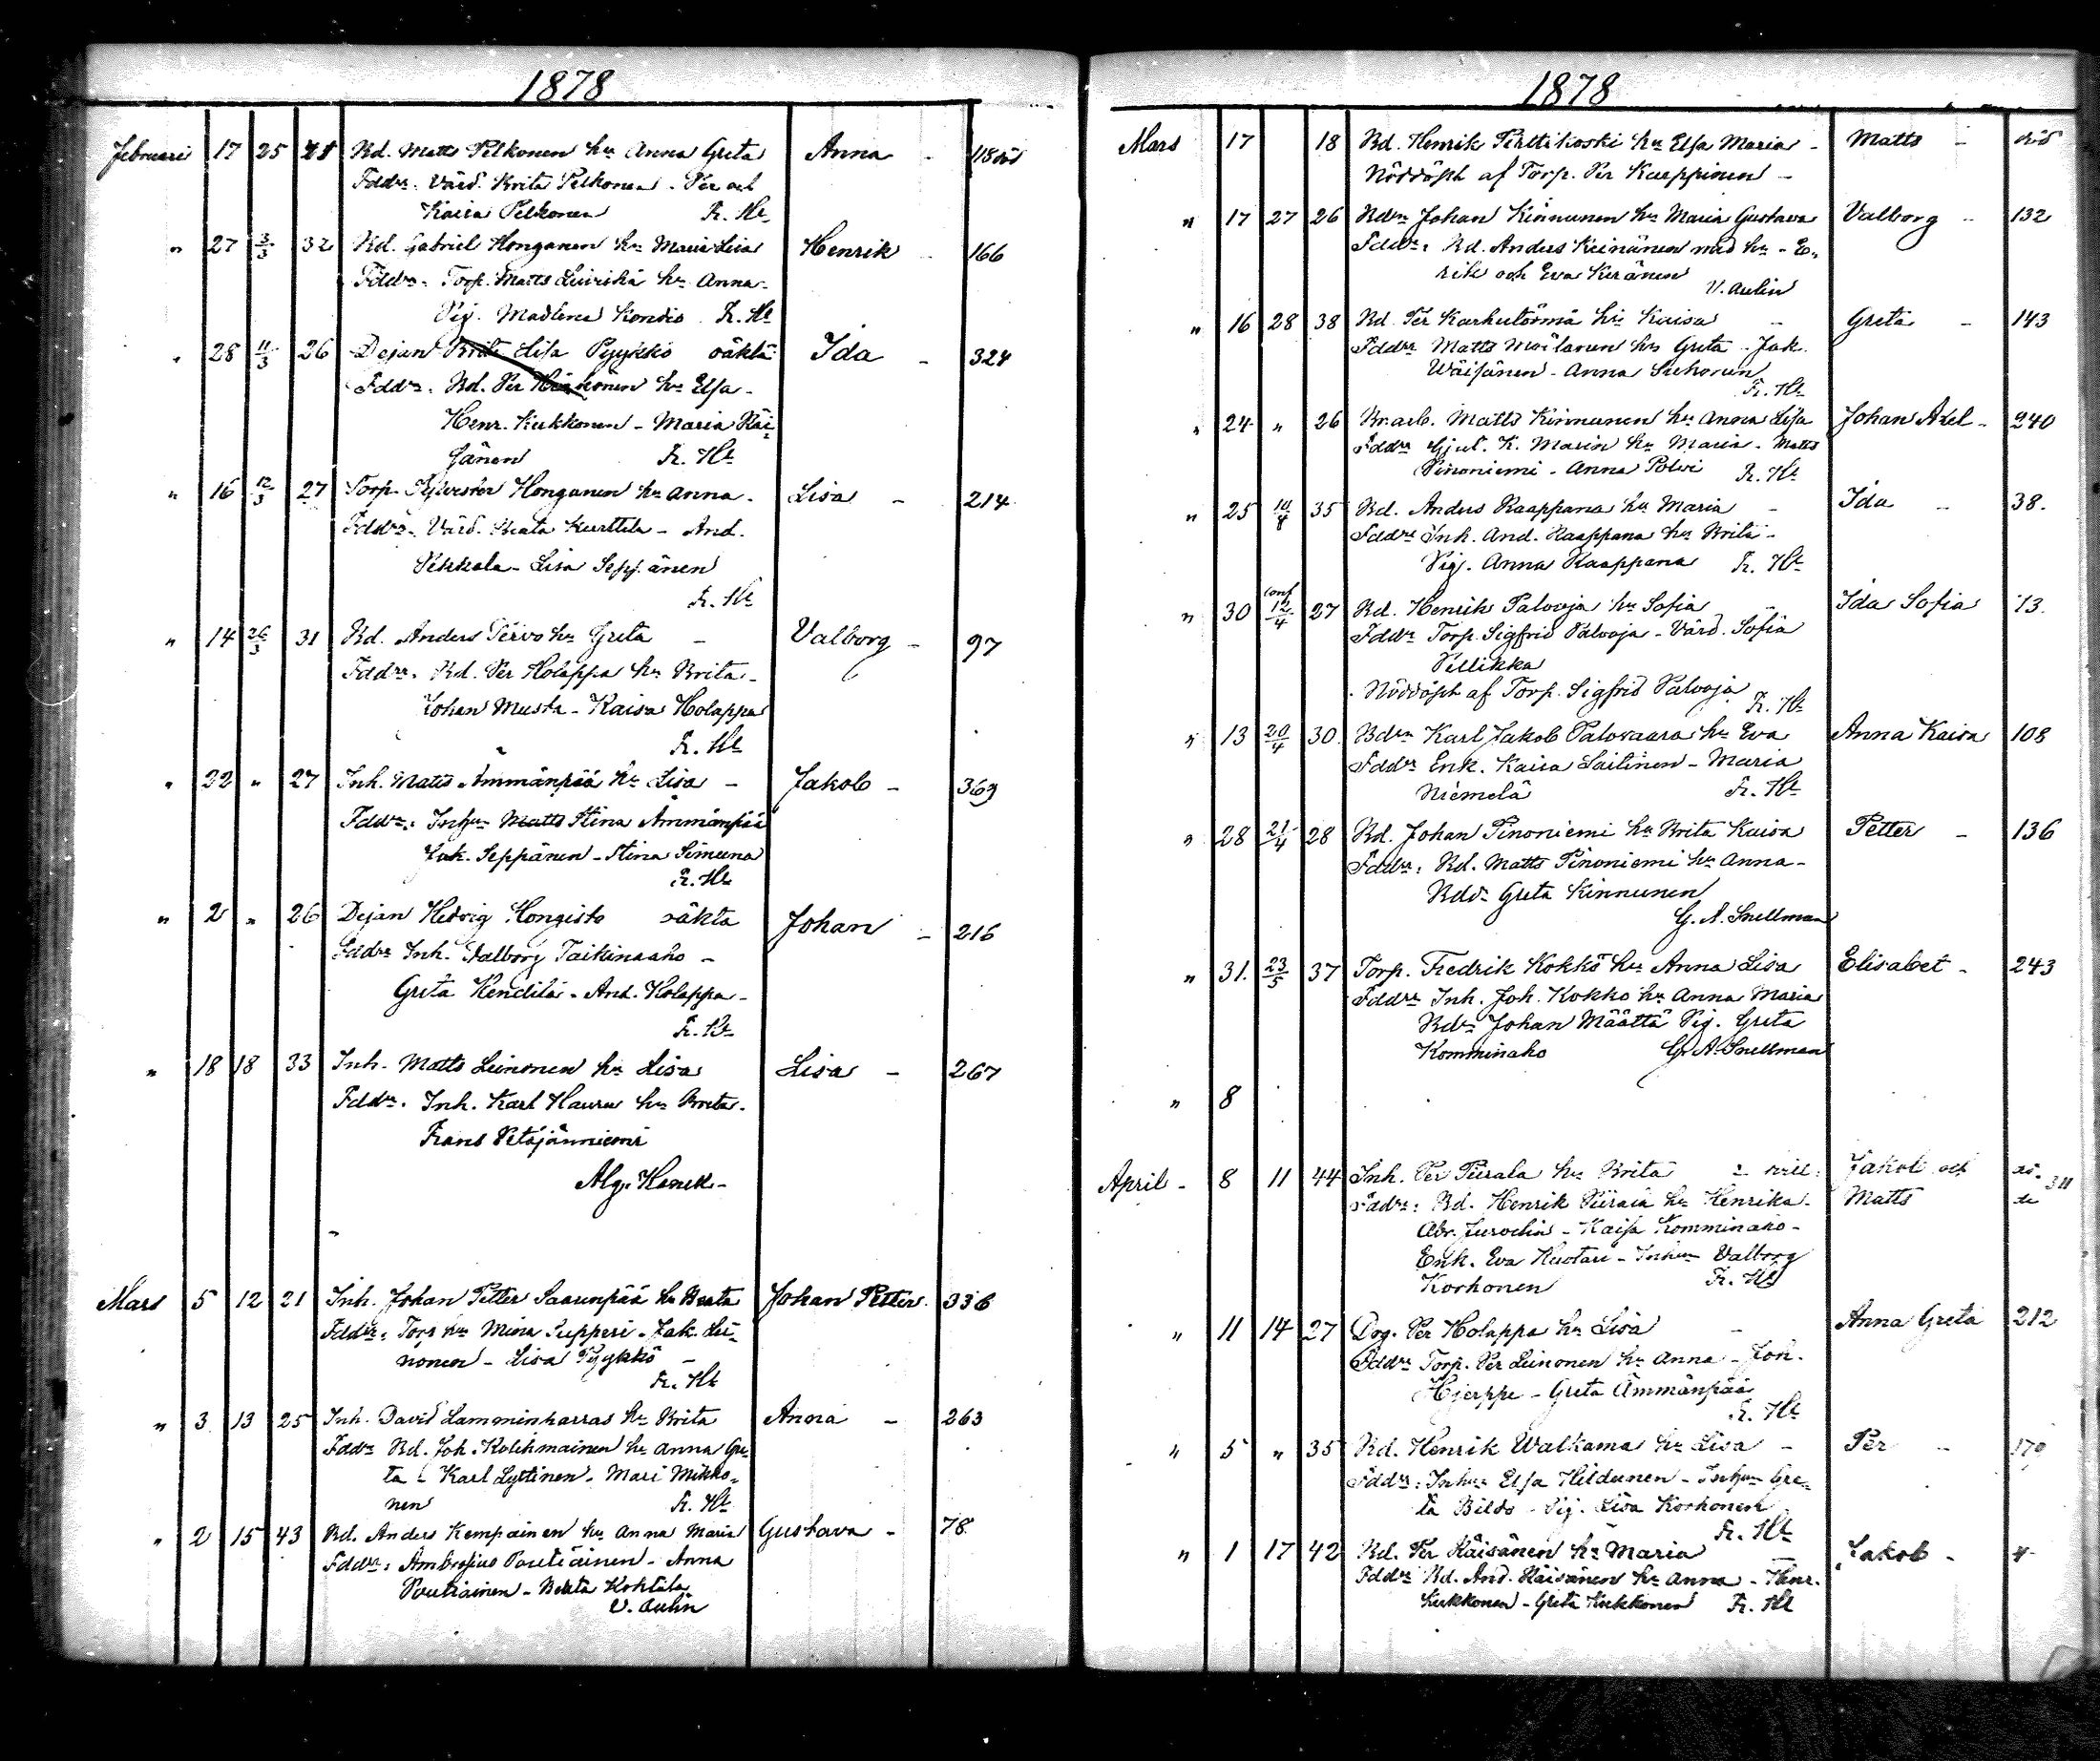 1878
Februari 17 25 28 Bd. Matts Pelkonen hu Anna Greta Anna - 118 död
Fddr: Värd. Brita Pelkonen - Per och
Kaisa Pelkonen Fr. Hl
" 27 3/3 32 Bd. Gabriel Honganen hu Maria Lisa Henrik - 166
Fddr: Torp. Matts Luiriha hu Anna -
Pig. Madlena Kondio Fr. Hl
" 28 11/3 26 Dejan Brita Lisa Pyykkö oäkta Ida - 324
Fddr: Bd. Per Härkönen hu Elsa -
Henr. Kukkonen - Maria Räi-
sänen Fr. Hl
" 16 12/3 27 Torp. Sylvester Honganen hu Anna - Lisa - 214
Fddr: Värd. Beata Kurttila - And.
Pekkala - Lisa Seppänen
Fr. Hl
" 14 26/3 31 Bd. Anders Tervo hu Greta - Valborg - 97
Fddr: Bd. Per Holappa hu Brita -
Johan Musta - Kaisa Holappa
Fr. Hl
" 22 " 27 Inh. Matts Ämmänpää hu Lisa - Jakob - 369
Fddr: Inhn Matts Stina Ämmänpää
Jak. Seppänen - Stina Simuna
Fr. Hl
" 2 " 26 Dejan Hedvig Hongisto oäkta Johan - 216
Fddr Inh. Valborg Taikinaaho -
Greta Kendilä - And. Holappa -
Fr. Hl
" 18 18 33 Inh. Matts Leinonen hu Lisa Lisa - 267
Fddr. Inh. Karl Hauru hu Brita -
Frans Petäjänniemi
Alg. Hanek -
Mars 5 12 21 Inh. Johan Petter Saarenpää hu Beata Johan Petter. 336
Fddr: Torp hu Mina Supperi - Jak. Lei-
nonen - Lisa Pyykkö -
Fr. Hl
" 3 13 25 Inh. David Lamminharras hu Brita Anna - 263
Fddr Bd. Joh. Kolehmainen hu Anna Gre-
ta - Karl Lyttinen - Mari Mikko-
nen Fr. Hl
" 2 15 43 Bd. Anders Kempainen hu Anna Maria Gustava - 78
Fddr: Ambrosius Poutiainen - Anna
Poutiainen - Beata Kohtala
V. Aulin
1878
Mars 17 18 Bd. Henrik Perttikoski hu Elsa Maria - Matts - död
Nöddöpt af Torp. Per Karppinen -
" 17 27 26 Bdsn Johan Kinnunen hu Maria Gustava Valborg - 132
Fddr: Bd. Anders Keinänen med hu - E-
rik och Eva Keränen
V. Aulin
" 16 28 38 Bd. Per Karhutörmä hu Kaisa - Greta - 143
Fddr Matts Moilanen hu Greta - Jak.
Wäisänen - Anna Suhonen
Fr. Hl
" 24 " 26 Br.arb. Matts Kinnunen hu Anna Lisa Johan Axel - 240
Fddr Gjut. K. Marin hu Maria - Matts
Pinoniemi - Anna Polvi Fr. Hl
" 25 10/4 35 Bd. Anders Kaappana hu Maria - Ida - 38.
Fddr Inh. And. Kaappana hu Brita -
Pig. Anna Kaappana Fr. Hl
" 30 conf 12/4 27 Bd. Henrik Palvoja hu Sofia Ida Sofia 13.
Fddr Torp. Sigfrid Palvoja - Värd. Sofia
Pellikka
Nöddöpt af Torp. Sigfrid Palvoja
Fr. Hl
" 13 20/4 30 Bdsn Karl Jakob Palovaara hu Eva Anna Kaisa 108
Fddr Enk. Kaisa Sailinen - Maria
Niemelä Fr. Hl
" 28 21/4 28 Bd. Johan Pinoniemi hu Brita Kaisa Petter - 136
Fddr: Bd. Matts Pinoniemi hu Anna -
Bdd Greta Kinnunen
G. A. Snellman
" 31. 23/5 37 Torp. Fredrik Kokko hu Anna Lisa Elisabet - 243
Fddr Inh. Joh. Kokko hu Anna Maria
Bds Johan Määttä Pig. Greta
Komminaho G. A. Snellman
" 8
April - 8 11 44 Inh. Per Piirala hu Brita Jakob och 311
Fddr: Bd. Henrik Piirala hu Henrika - Matts
Abr. Juvelin - Kaisa Komminaho -
Enk. Eva Huotari - Inhn Valborg
Korhonen Fr. Hl
" 11 14 27 Drg. Per Holappa hu Lisa - Anna Greta 212
Fddr Torp. Per Leinonen hu Anna - Joh.
Hjerppe - Greta Ämmänpää
Fr. Hl
" 5 " 35 Bd. Henrik Walkama hu Lisa - Per - 179
Fddr: Inhn Elsa Hildunen - Inhn Gre-
ta Bildo - Pig. Lisa Korhonen
Fr. Hl
" 1 17 42 Bd. Per Räisänen hu Maria - Jakob - 4
Fddr Bd. And. Räisänen hu Anna - Henr.
Kukkonen - Greta Kukkonen Fr. Hl